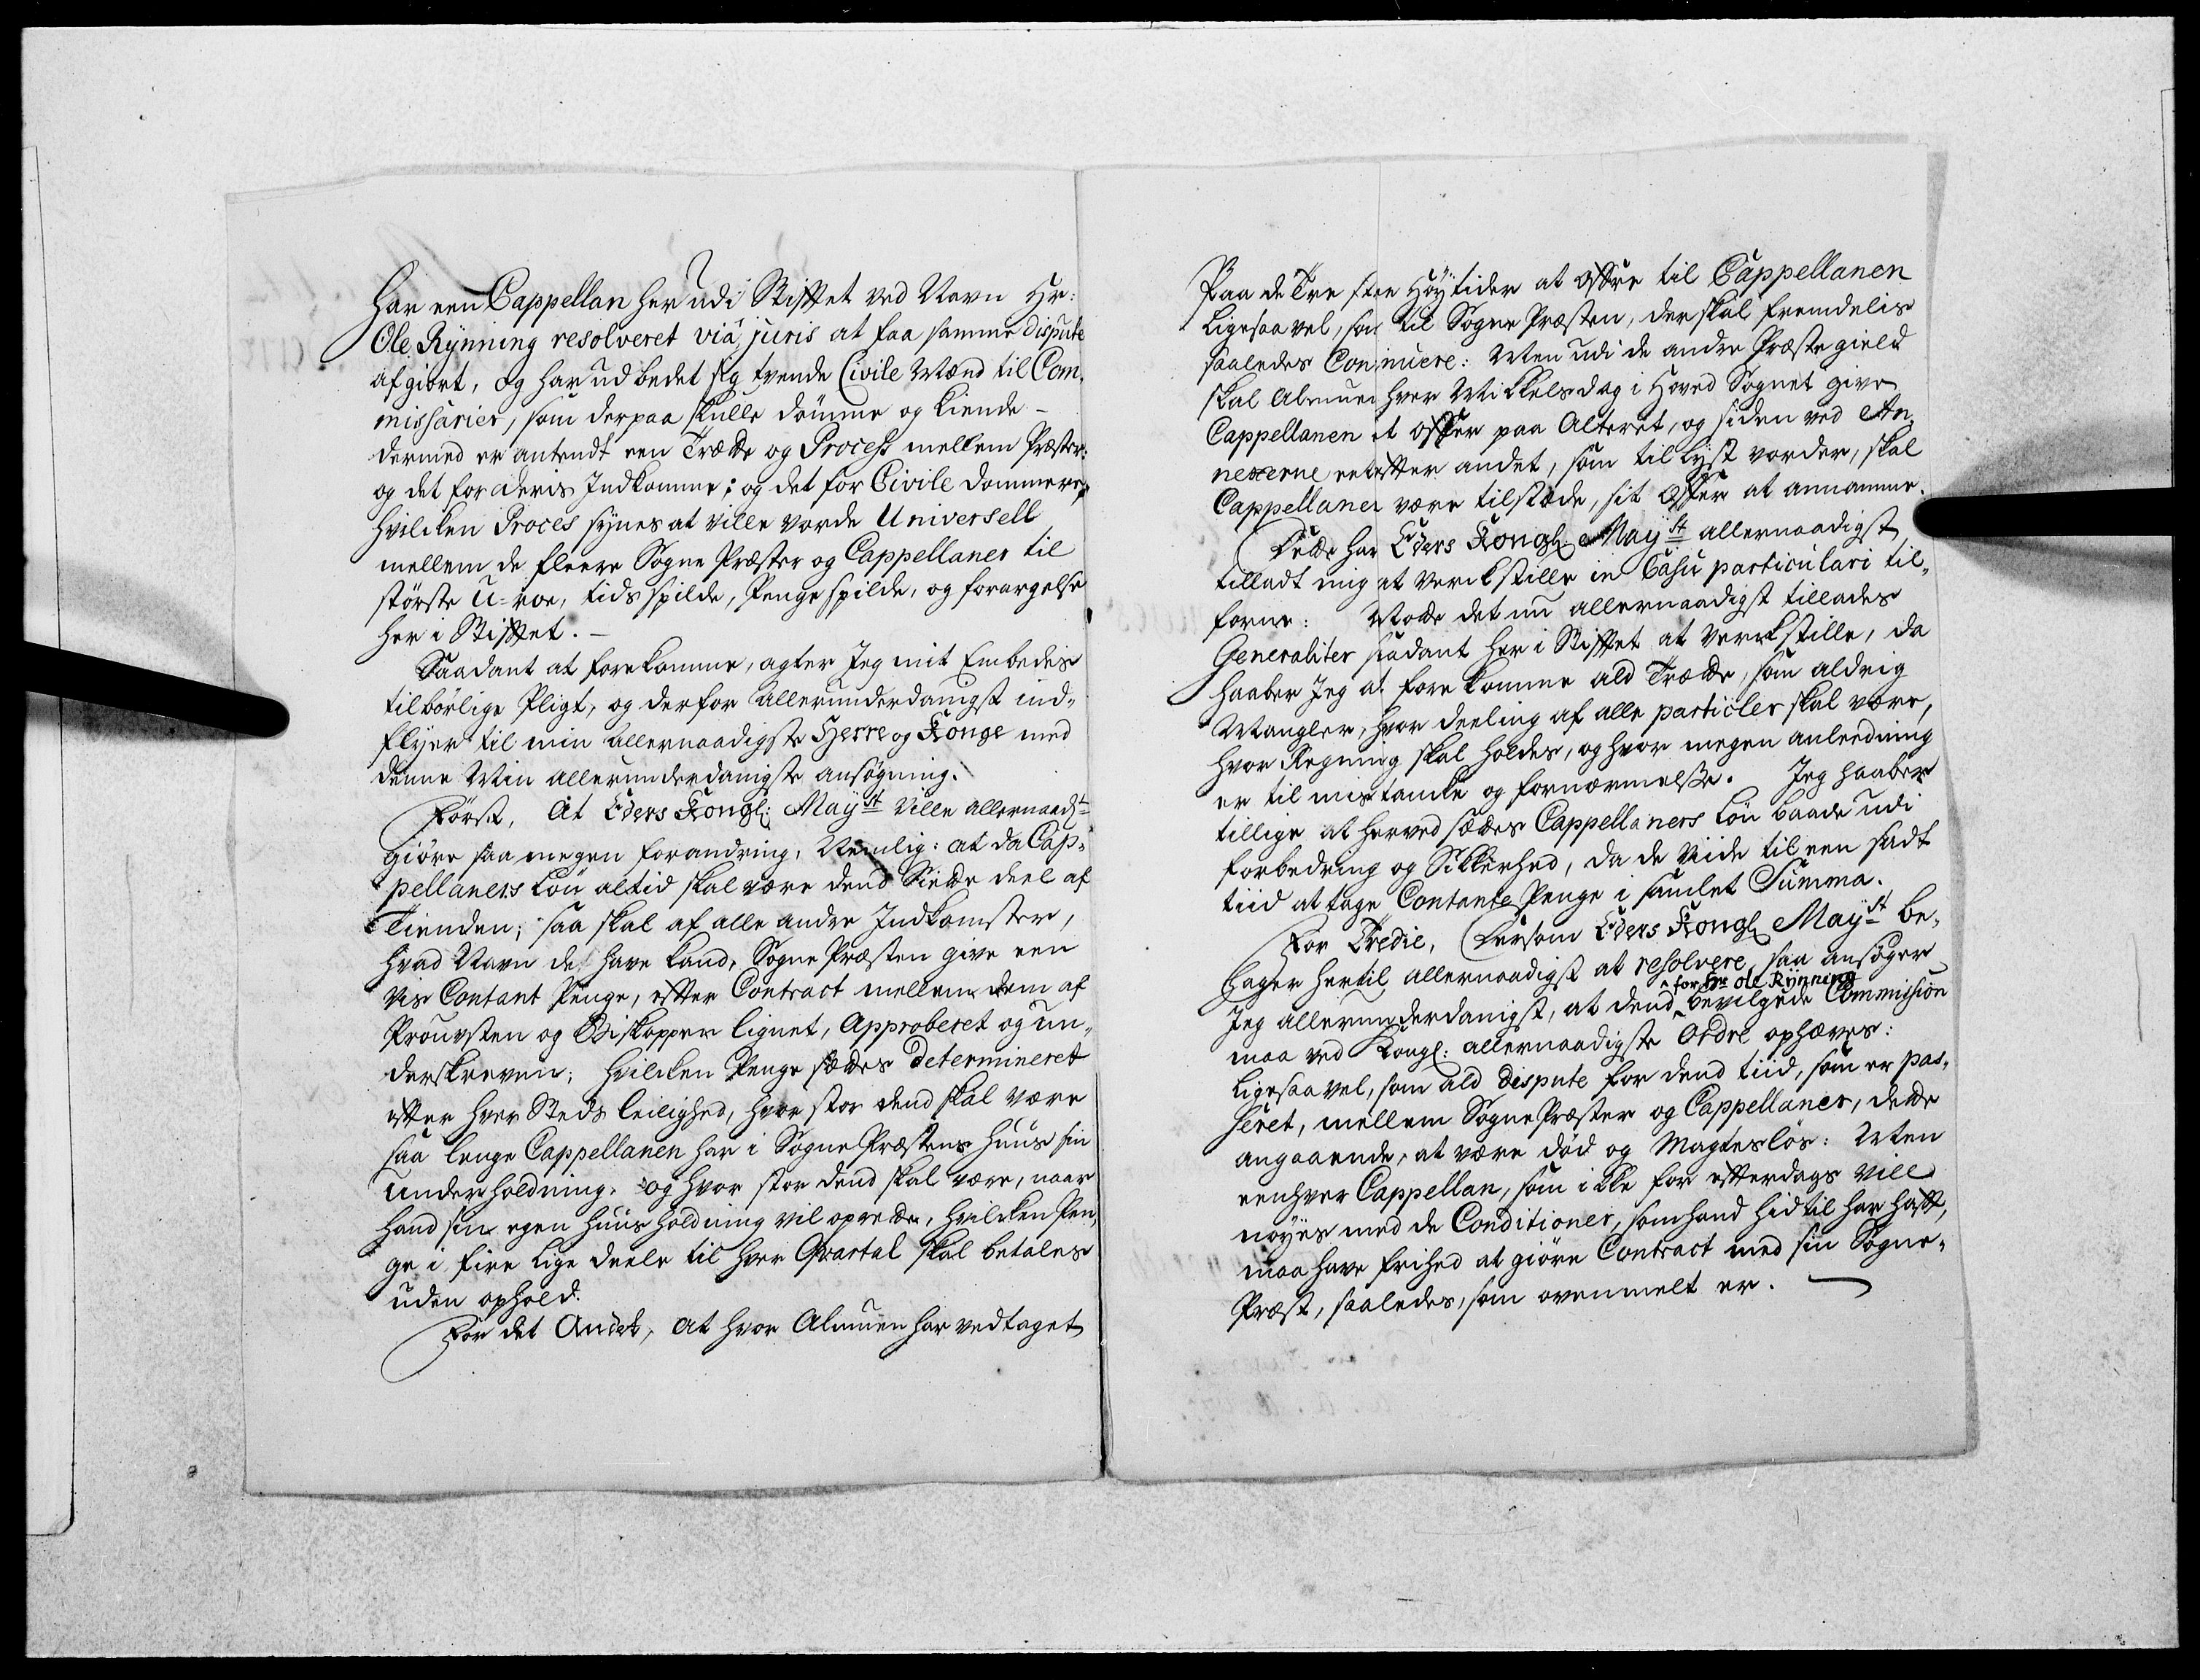 Har een Cappellan her udi Stiftet ved Navn Hr:
Ole Rynning resolveret via juris at faa samme dispute
afgiort, og har udbedet sig tvende Civile Mænd til Com-
missarier, som derpaa skulle dömme og kiende -
dermed er antendt een Trætte og Process mellem Præster:
og det for deris Indkomme; og det for Civile Dommere,
hvilcken Proces synes at ville vorde Universell
mellem de fleere Sogne Præster og Cappellaner til
störste U-roe, tids spilde, Penge spilde, og forargelse
her i Stiftet. -
Saadant at forekomme, agter Jeg mit Embedes
tilbörlige Pligt, og derfor allerunderdanigst ind-
flyer til min allernaadigste Herre og Konge med
denne Min allerunderdanigste ansögning.
Först, At Eders Kongl: Mayst ville allernaadst
giöre saa megen forandring, Nemlig: at da Cap-
pellaners Lön altid skal være dend Siette deel af
Tienden; saa skal af alle andre Indkomster,
hvad Navn det have kand, Sogne Præsten give een
vis Contant Penge, efter Contract mellem dem af
Prousten og Biskoppen lignet, Approberet og un-
derskreven; hvilcken Penge sættes determineret
efter hver Steds leilighed, hvor stor dend skal være
saa lenge Cappellanen har i Sogne Præstens Huus sin
Underholdning. og hvor stor dend skal være, naar
hand sin egen huusholdning vil oprette, hvilcken Pen-
ge i fire lige deele til hver Qvartal skal betales
uden ophold.
For det Andet, At hvor Almuen har vedtaget
Paa de Tre store Höytider at offre til Cappellanen
Ligesaavel, som til Sogne Præsten, der skal fremdelis
saaledes Continuere: Men udi de andre Præstegield
skal Almuen hver Mikkelsdag i Hoved Sognet give
Cappellanen et offer paa Alteret, og siden ved An-
nexerne eet efter andet, som tillyst vorder, skal
Cappellanen være tilstæde, sit Offer at annamme.
Dette har Eders Kongl: Mayst allernaadigst
tilladt mig at verckstille in Casu particulari til-
forne: Motte det nu allernaadigst tillades
Generaliter saadant her i Stiftet at verckstille, da
haaber Jeg at forekomme ald Trætte, som aldrig
Mangler, hvor deeling af alle particler skal være,
hvor Regning skal holdes, og hvor megen anleedning
er til mistancke og fornærmelse. Jeg haaber
tillige at herved sættes Cappellaners Lön baade udi
forbedring og Sikkerhed, da de viide til een sadt
tiid at tage Contante Penge i samlet Summa.
For Tredie, Dersom Eders Kongl Mayst be-
hager hertil allernaadigst at resolvere, saa ansöger
^for Hr Ole Rynning
Jeg allerunderdanigst, at dend ^ bevilgede Commission
maa ved Kongl: allernaadigste Ordre ophæves:
Ligesaavel, som ald Dispute for dend tiid, som er pas-
seret, mellem Sogne Præster og Cappellaner, dette
angaaende, at være död og Magteslös: Men
eenhver Cappellan, som ikke for efterdags vill
nöyes med de Conditioner, som hand hidtil har haft,
maa have frihed at giöre Contract med sin Sogne-
Præst, saaledes, som ovenmelt er.